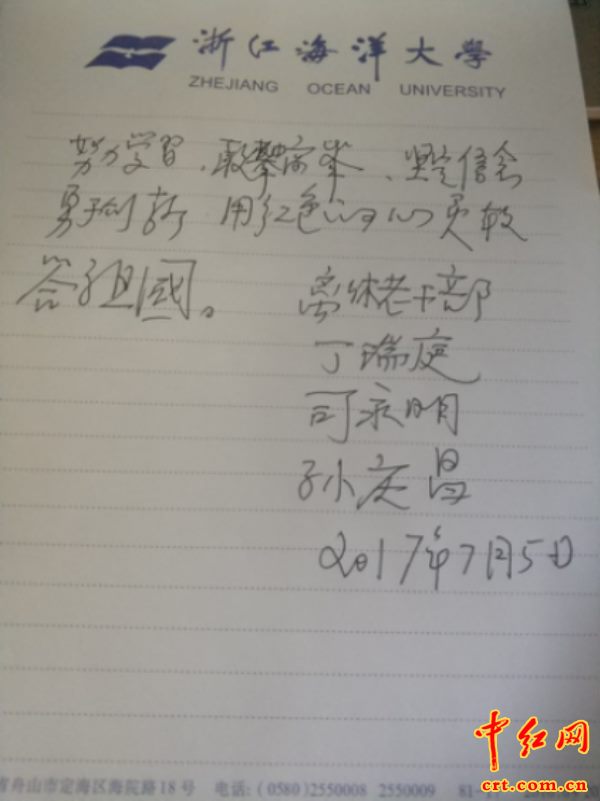 浙江海洋大學
ZHEJIANG OCEAN UNIVERSITY
努力学習、敢攀高峯、坚定信念
勇于创新 用红色的心灵报
答祖國。
离休老干部
丁瑞庭
司永明
孙庆昌
2017年7月5日
省舟山市定海区海院路18号 电话:(0580)2550008 2550009 81-
中红网
crt.com.cn